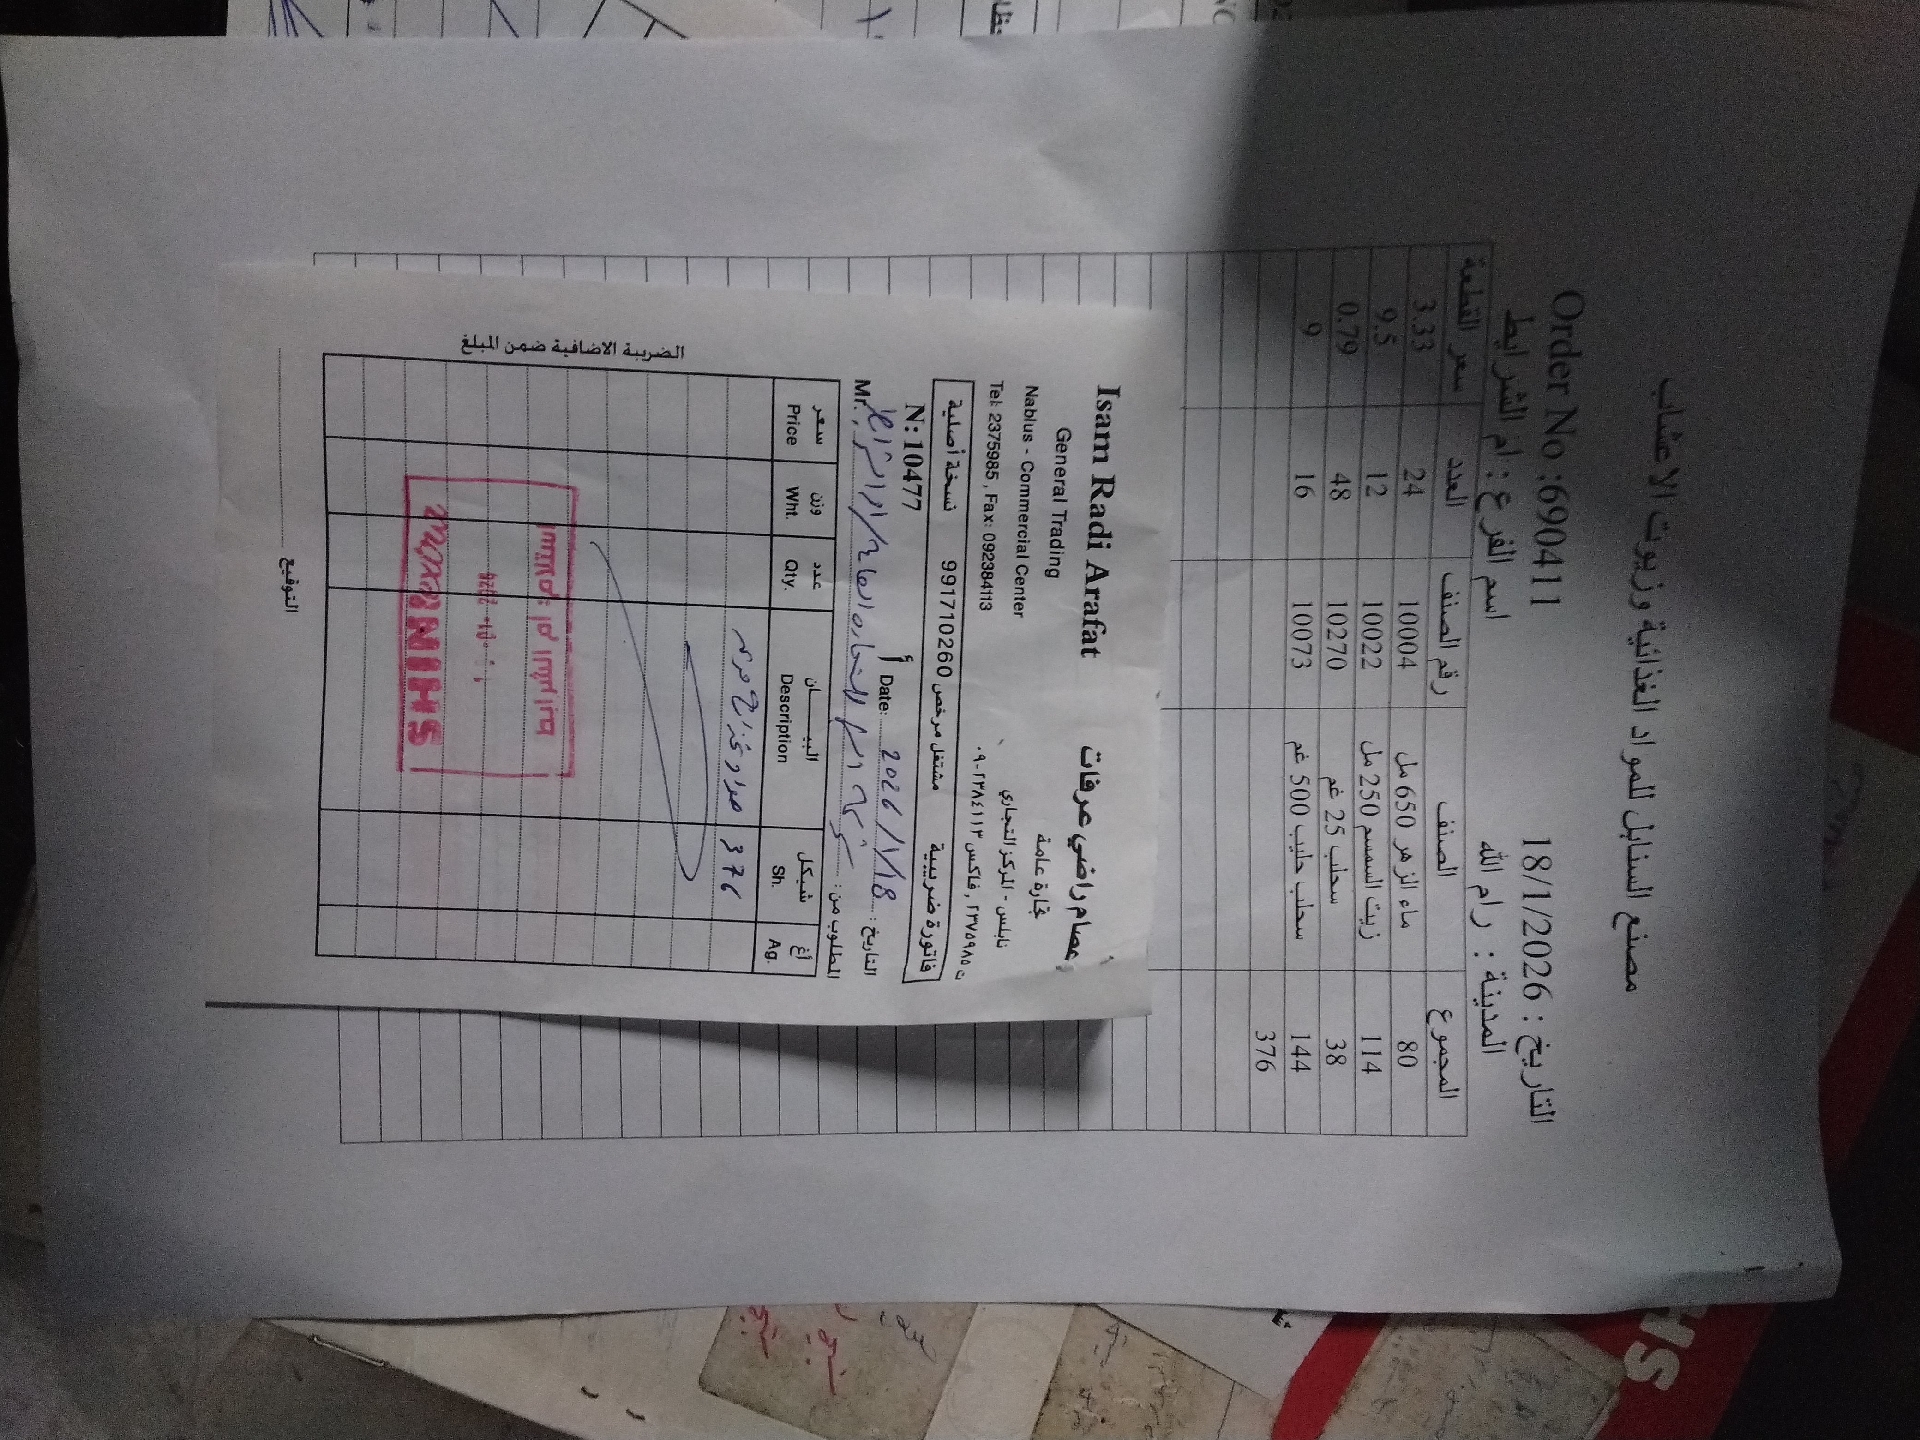 مصنع السنابل للمواد الغذائية وزيوت الاعشاب
Order No :690411 التاريخ : 18/1/2026
اسم الفرع : ام الشرايط المدينة : رام الله
سعر القطعة العدد رقم الصنف الصنف المجموع
3.33 24 10004 ماء الزهر 650 مل 80
9.5 12 10022 زيت السمسم 250 مل 114
0.79 48 10270 سحلب 25 غم 38
9 16 10073 سحلب حليب 500 غم 144
376
Isam Radi Arafat عصام راضي عرفات
General Trading تجارة عامة
Nablus - Commercial Center نابلس - المركز التجاري
Tel: 2375985 , Fax: 092384113 ت ٢٣٧٥٩٨٥ , فاكس ٢٣٨٤١١٣-٠٩
نسخة أصلية 991710260 مشتغل مرخص فاتورة ضريبية
N: 10477 أ Date: 2026/1/18 التاريخ :
Mr. المطلوب من :
سعر وزن عدد البيـــــان شيكل أغ
Price Wht. Qty. Description Sh. Ag.
مواد 376
SHIN
الضريبة الاضافية ضمن المبلغ
التوقيع